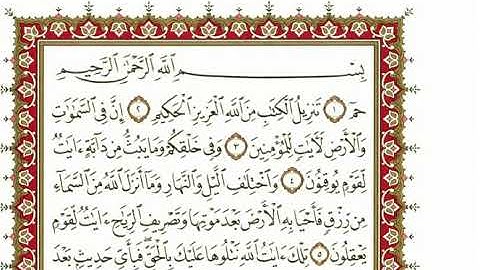 بِسْمِ اللَّهِ الرَّحْمَٰنِ الرَّحِيمِ
حمٓ ١ تَنزِيلُ الْكِتَٰبِ مِنَ اللَّهِ الْعَزِيزِ الْحَكِيمِ ٢ إِنَّ فِي السَّمَٰوَٰتِ
وَالْأَرْضِ لَآيَٰتٍ لِّلْمُؤْمِنِينَ ٣ وَفِي خَلْقِكُمْ وَمَا يَبُثُّ مِن دَآبَّةٍ ءَايَٰتٌ
لِّقَوْمٍ يُوقِنُونَ ٤ وَاخْتِلَٰفِ الَّيْلِ وَالنَّهَارِ وَمَآ أَنزَلَ اللَّهُ مِنَ السَّمَآءِ
مِن رِّزْقٍ فَأَحْيَا بِهِ الْأَرْضَ بَعْدَ مَوْتِهَا وَتَصْرِيفِ الرِّيَٰحِ ءَايَٰتٌ لِّقَوْمٍ
يَعْقِلُونَ ٥ تِلْكَ ءَايَٰتُ اللَّهِ نَتْلُوهَا عَلَيْكَ بِالْحَقِّ ۖ فَبِأَيِّ حَدِيثٍۭ بَعْدَ